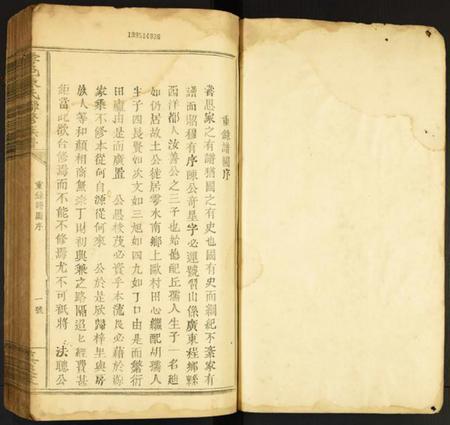 133514936
重錄譜圖序
嘗思家之有譜猶國之有史也國有史而綱紀不紊家有
譜而昭穆有序陳公奇星字必運號碧山係廣東程鄉縣
西洋都人汝善公之三子也始祖配丘孺人生子一名迪
如仍居故土公徙居雩水南鄉上歐村田心繼配胡孺人
生子四長賢如次文如三旭如四九如丁口由是而繁衍
田廬由是而廣置 公思枝茂必資乎本流長必藉於源
家乘不修本從何自源從何來 公於是欣歸梓里與房
族人等和顏相商無奈丁財初興兼之路隔迢迢經費甚
鉅當此欲合修焉而不能不修焉尤不可祇將 法聰公
重錄譜圖序
一號